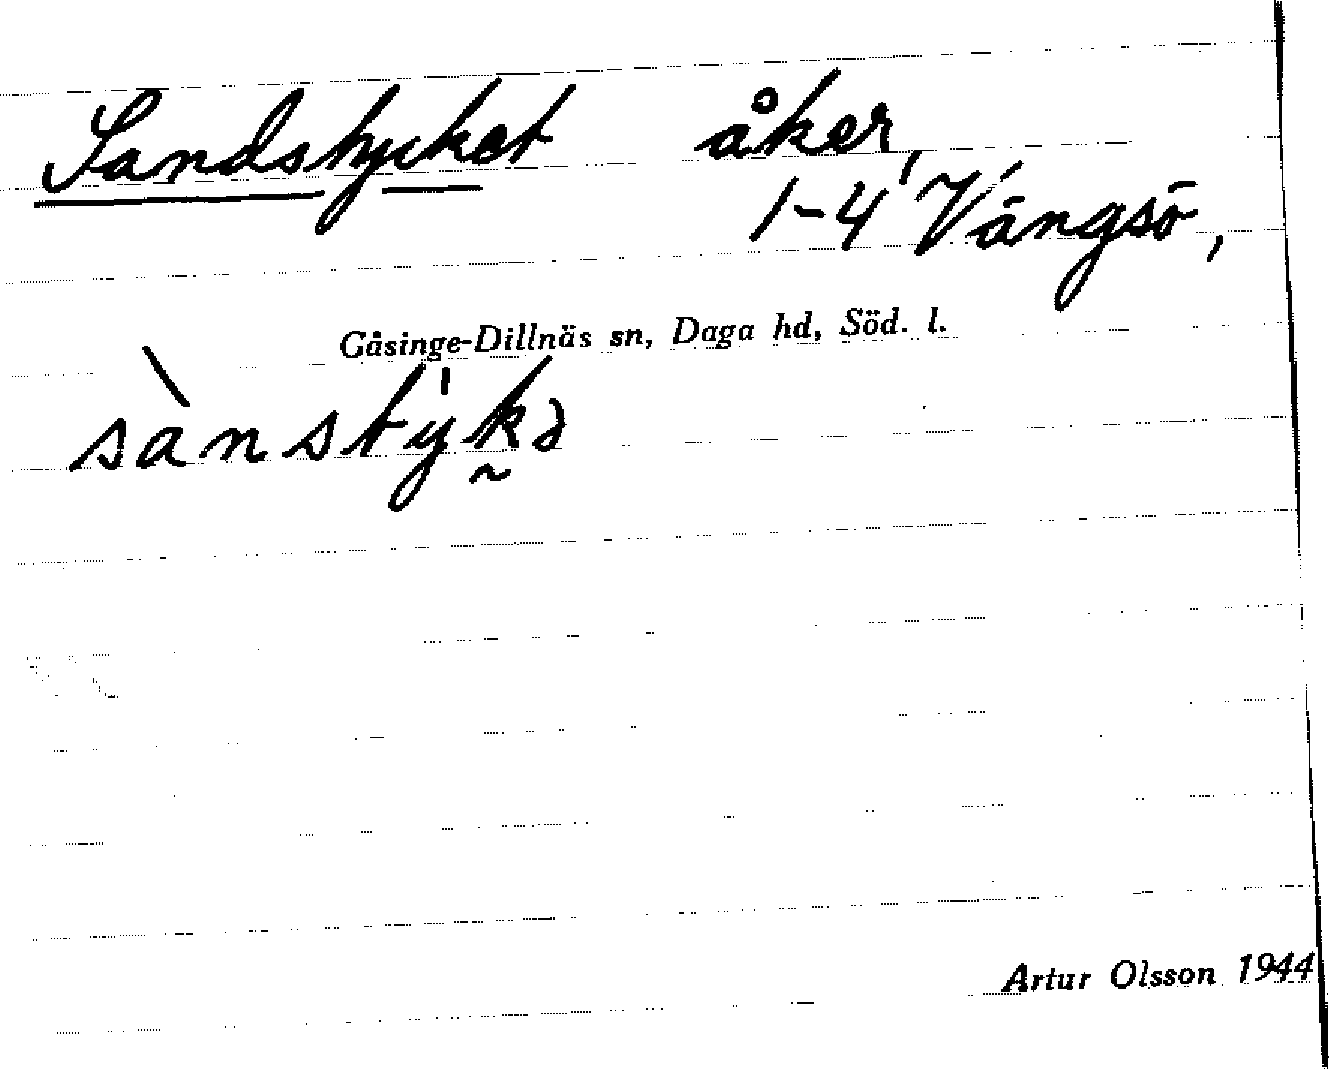 Sandstycket åker,
1-4 Vängsö,
Gåsinge-Dillnäs sn, Daga hd, Söd. l.
sànstýk̰ə
Artur Olsson 1944